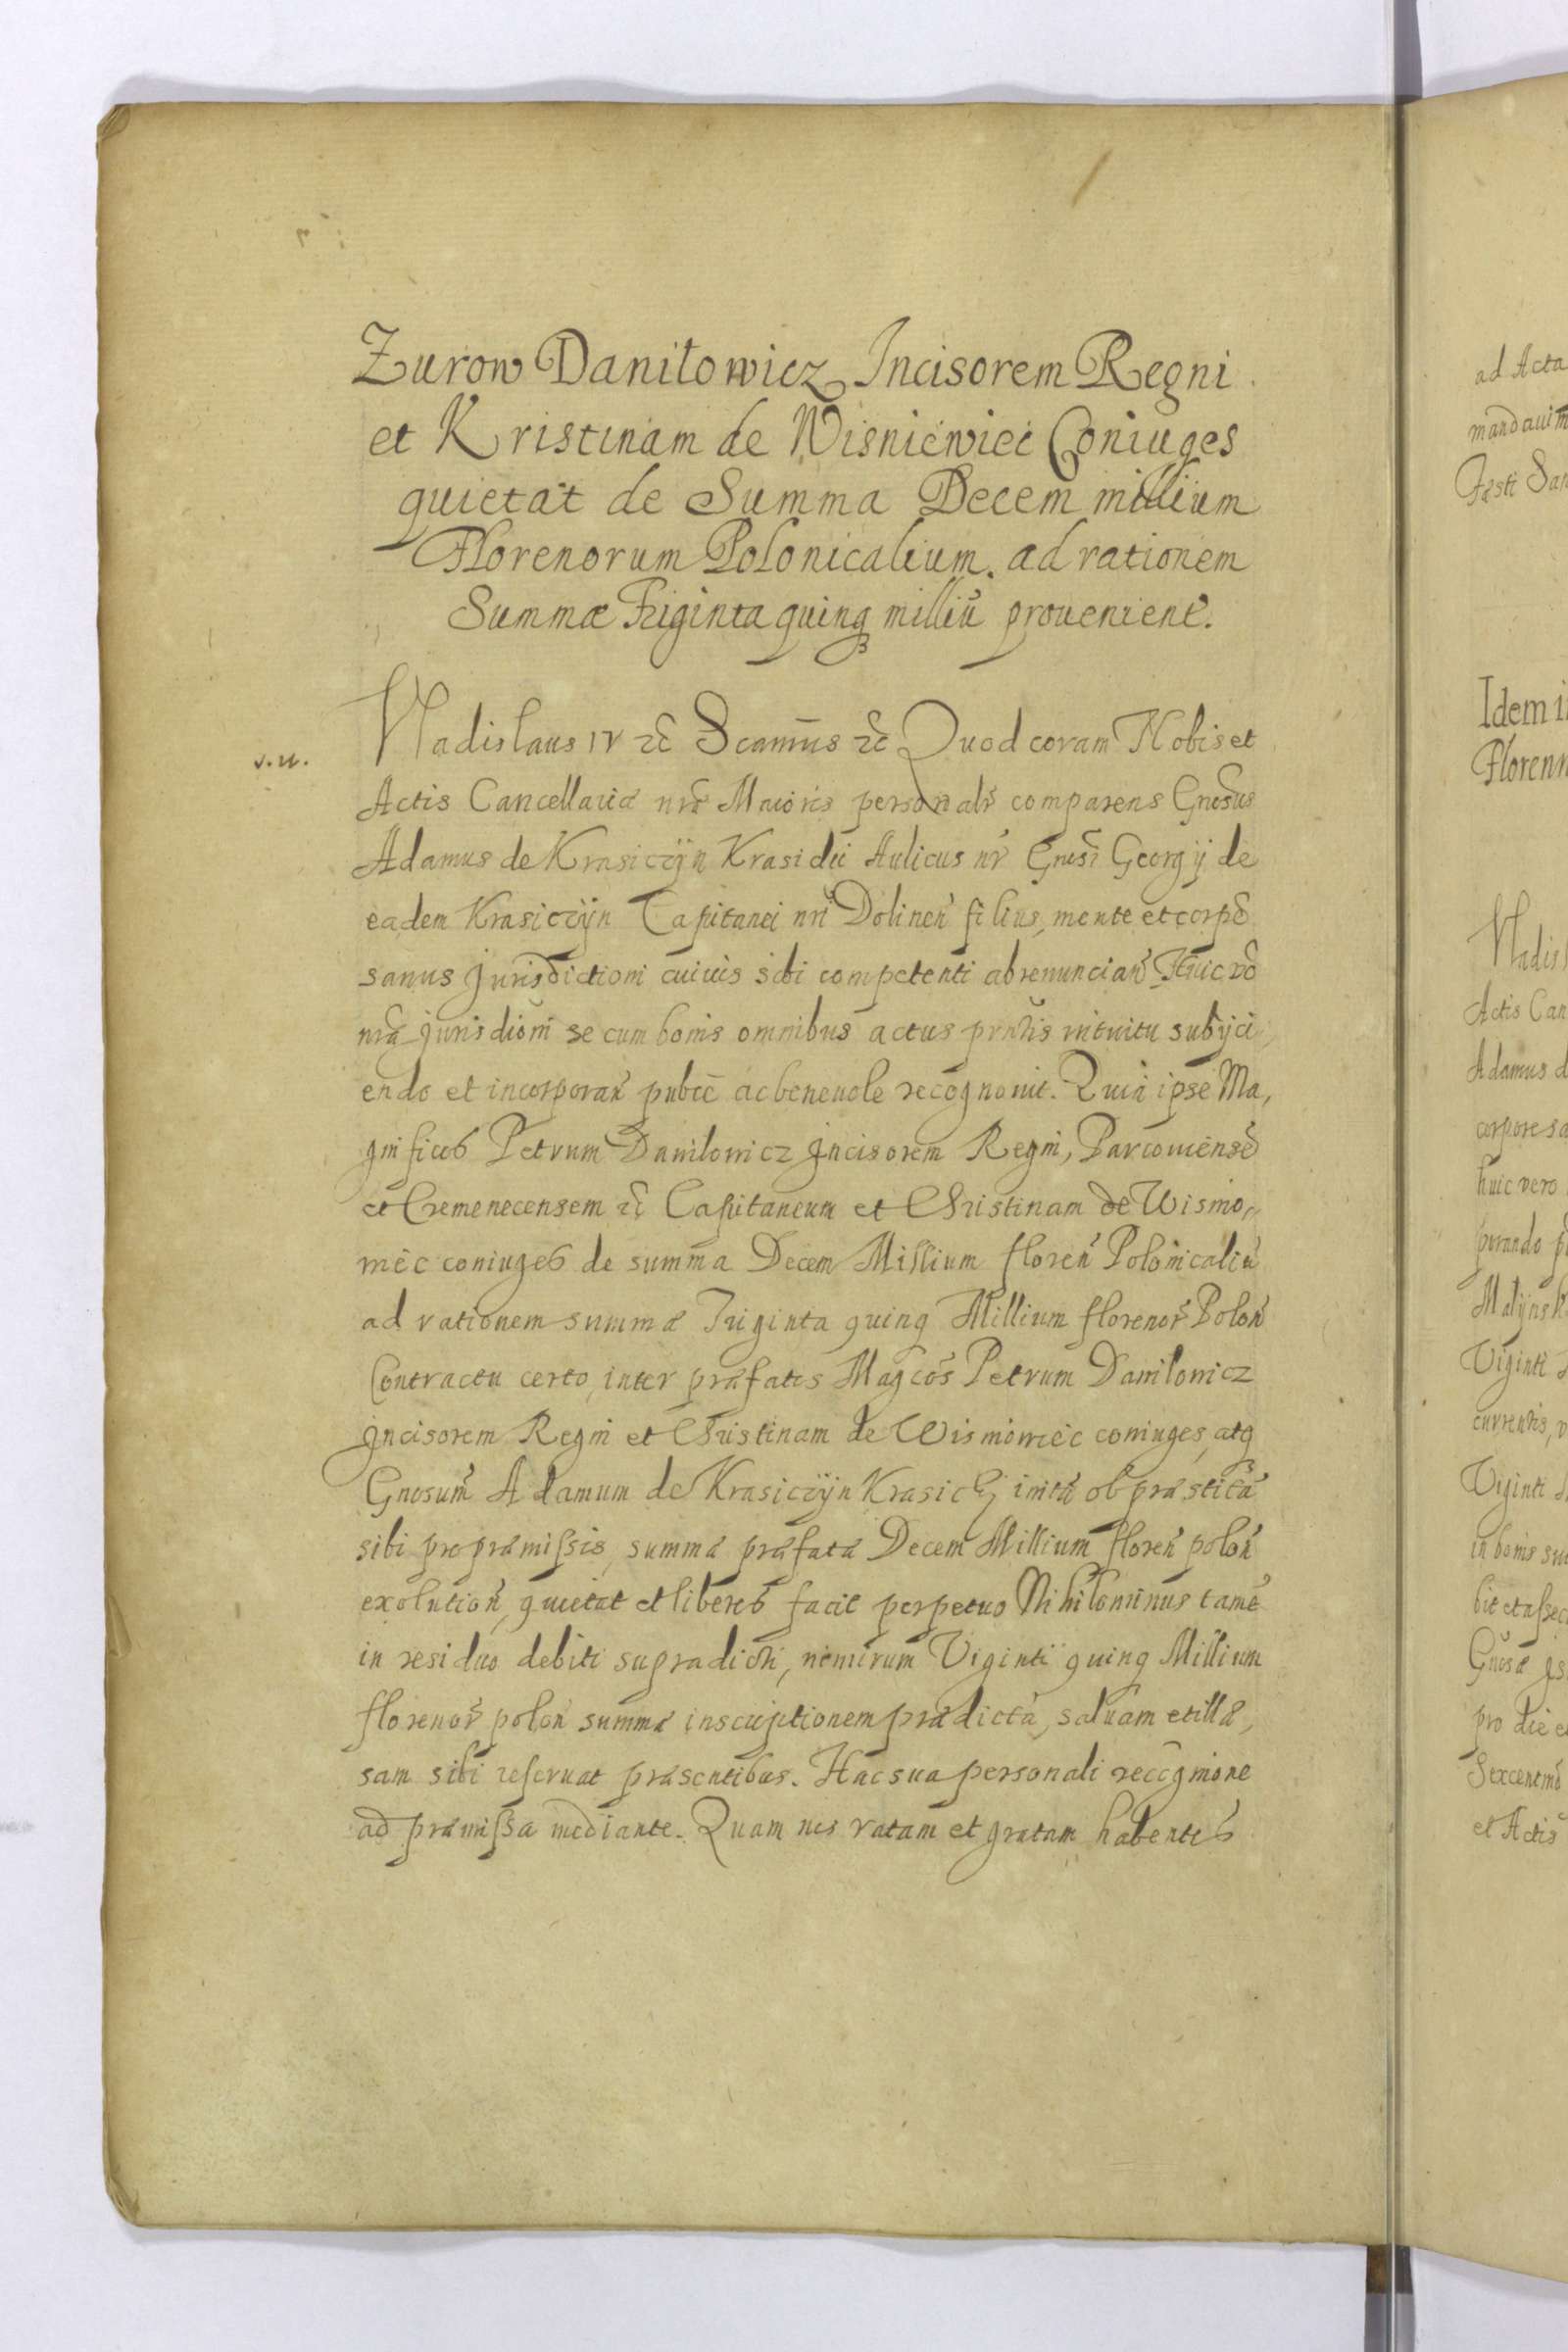 Żurow Daniłowicz Incisorem Regni
et Kristinam de Wisniewiec Coniuges
quietat de Summa Decem millium
Florenorum Polonicalium. ad rationem
Summæ Triginta quinq milliū prouenient.
Vladislaus IV etc Scamūs etc Quod coram Nobis et
v. u.
Actis Cancellariæ nrē Maioris personalr comparens Gnosus
Adamus de Krasiczÿn Krasicki Aulicus nr Gnosi Georgij de
eadem Krasiczÿn Capitanei nri Dolinen filius, mente et corpe
sanus Jurisdictioni cuiuis sibi competenti abrenuncian Huic vo
nrā Jurisdioni se cum bonis omnibus actus prntis intuitu subijci
endo et incorporan publcē ac beneuole recognouit. Quia ipse Ma,
gnificos Petrum Danilowicz Incisorem Regni, Parcouiensē
et Cremenecensem etc Capitaneum et Christinam de Wisnio,
wiec coniuges de summa Decem Millium floren Polonicaliū
ad rationem summæ Triginta quinq Millium florenor Polon
Contractu certo, inter præfatos Magcos Petrum Danilowicz
Incisorem Regni et Christinam de Wisniowiec coniuges, atq
Gnosum Adamum de Krasiczÿn Krasicki initā ob præstitā
sibi pro præmissis, summæ præfatæ Decem Millium floren polon
exolution, quietat et liberos facit perpetuo Nihilominus tamē
in residuo debiti supradicti, nimirum Viginti quinq Millium
florenor polon summæ inscriptionem prædictā, saluam et illæ,
sam sibi reseruat præsentibus. Hac sua personali recognione
ad præmissa mediante. Quam nos ratam et gratam habentes
ad Acta
Idem i
Florenn
Vladis
Actis Can
Adamus d
huic vero
Viginti
Viginti
pro die e
et Actis